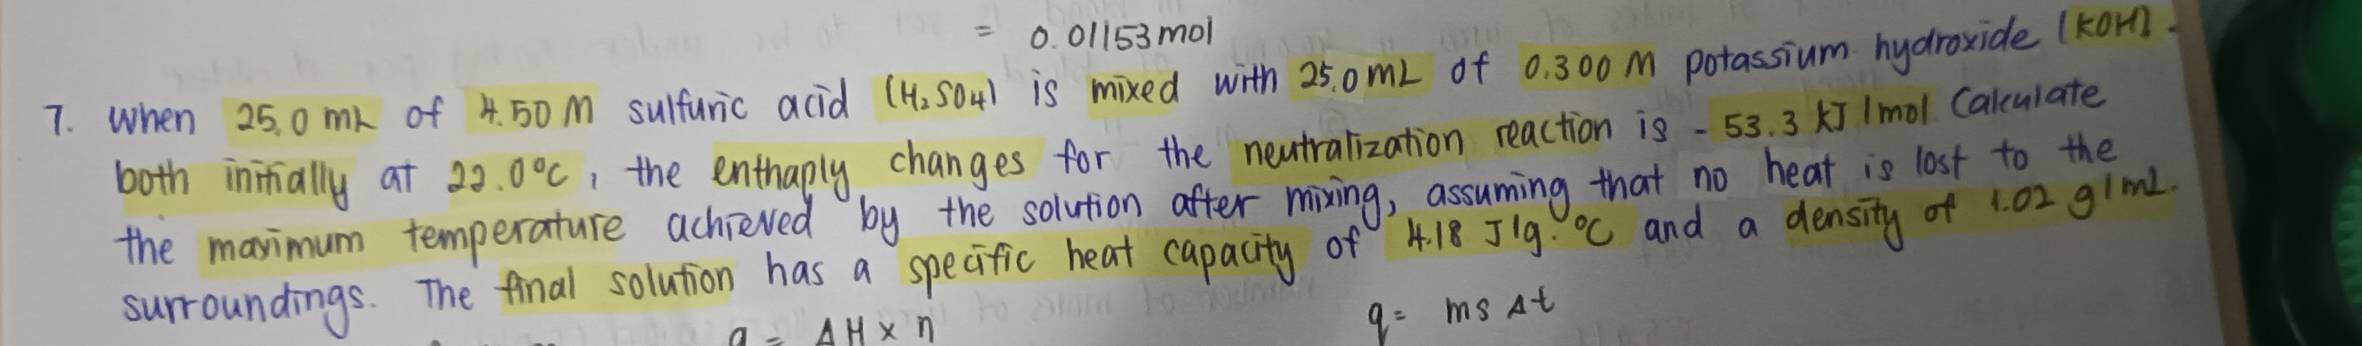 = 0.01153 mol
7. When 25.0 mL of 4.50 M sulfuric acid (H₂SO₄) is mixed with 25.0 mL of 0.300 M potassium hydroxide (KOH).
both initially at 22.0°C, the enthaply changes for the neutralization reaction is - 53.3 kJ/mol Calculate
the maximum temperature achieved by the solution after mixing, assuming that no heat is lost to the
surroundings. The final solution has a specific heat capacity of 4.18 J/g.°C and a density of 1.02 g/mL.
q = ΔH × n
q = ms Δt